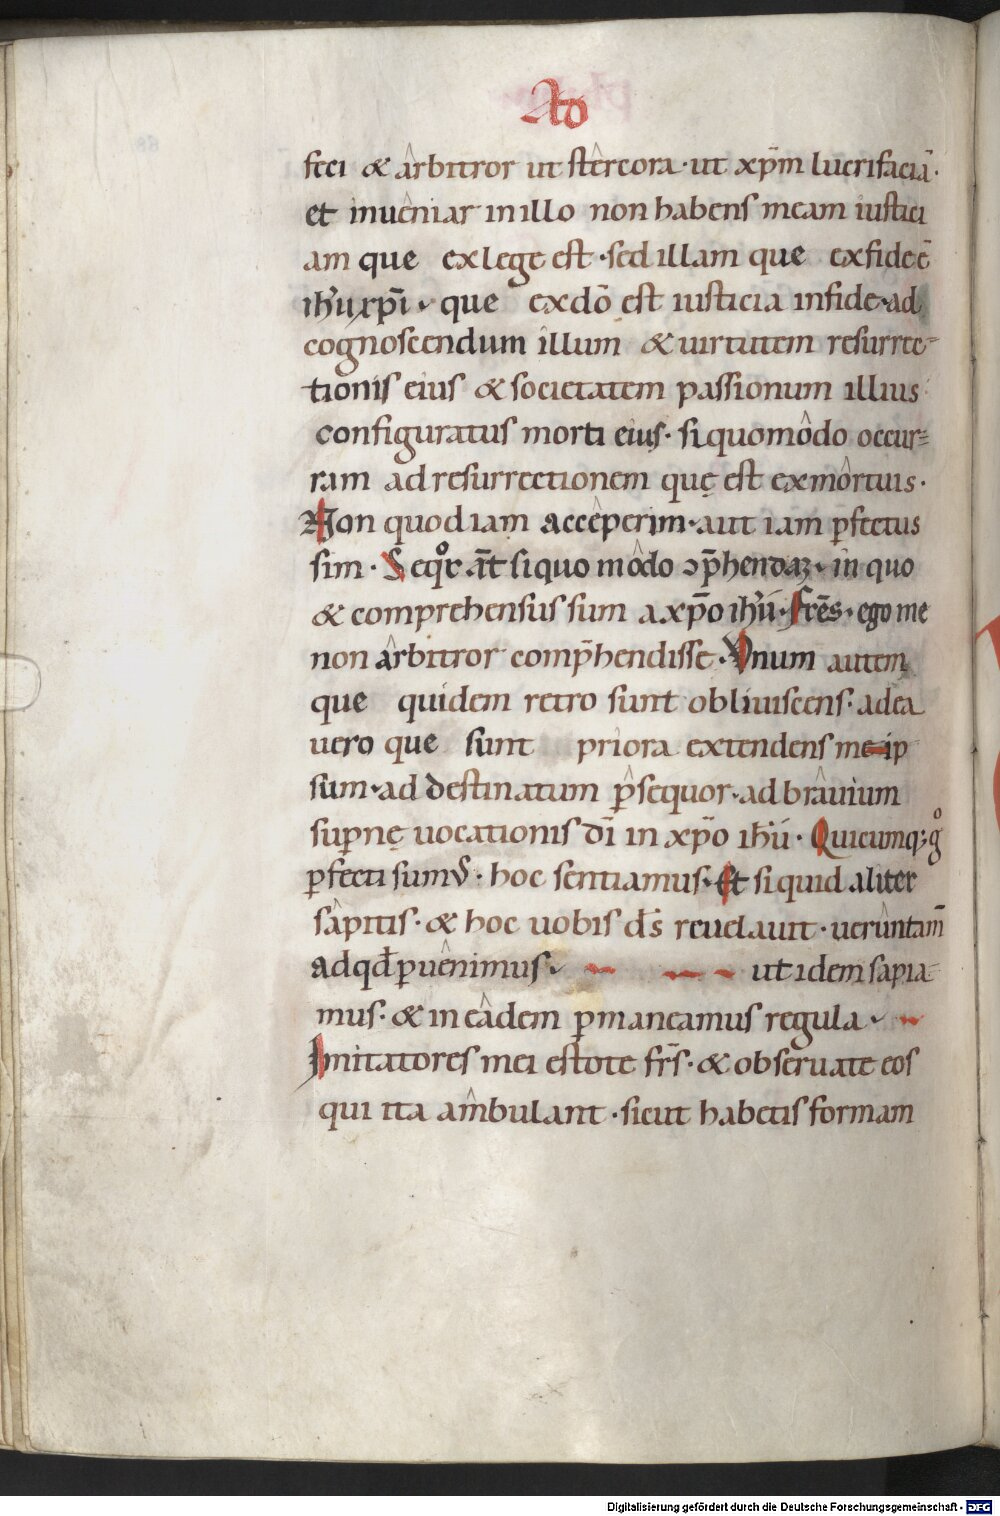 Ad
feci & arbitror ut stêrcora · ut xp̄m lucrifaciā ·
et inuêniar in illo non habens meam iustici
am que ex lege est · sed illam que ex fide ē
ih'u xp̄i · que ex dō est iusticia in fide · ad
cognoscendum illum & uirtutem resurrec-
tionis eius & societatem passionum illius ·
configuratus morti eius · si quo môdo occur-
ram ad resurrectionem quę est ex môrtuis ·
Non quod iam accêperim · aut iam p̄fectus
sim · Seqͦr aū̄t si quo môdo ↄp̄hendaꝫ · in quo
& comprehensus sum a xp̄o ih'ū · Frēs · ego me
non ârbitror comp̄hendisse · Vnum autem
que quidem retro sunt obliuiscens · ad ea
uero que sunt priora extendens me ip
sum · ad destinatum p̄sequor · ad brâuium
sup̄nę uocationis dī in xp̄o ih'ū · Quicumqꝫ gͦ
p̄fecti sumꝰ · hoc sentiamus · Et si quid aliter
sâpitis · & hoc uobis d̄s reuelauit · uerûntam̄
ad qđ p̄uênimus · ut idem sapia-
mus · & in eâdem p̄maneamus regula ·
Imitatores mei estote fr̄s · & obseruate eos
qui ita âmbulant · sicut habetis formam
Digitalisierung gefördert durch die Deutsche Forschungsgemeinschaft · DFG